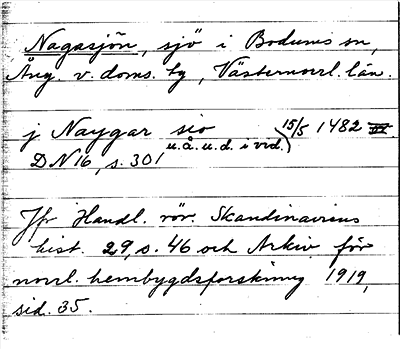 Nagasjön, sjö i Bodums sn,
Ång. v. doms. tg, Västernorrl. län.
j Naygar sio 15/5 1482
DN 16, s. 301 u.å.u.d. i vid.)
Jfr Handl. rör. Skandinaviens
hist. 29, s. 46 och Arkiv för
norrl. hembygdsforskning 1919,
sid. 35.